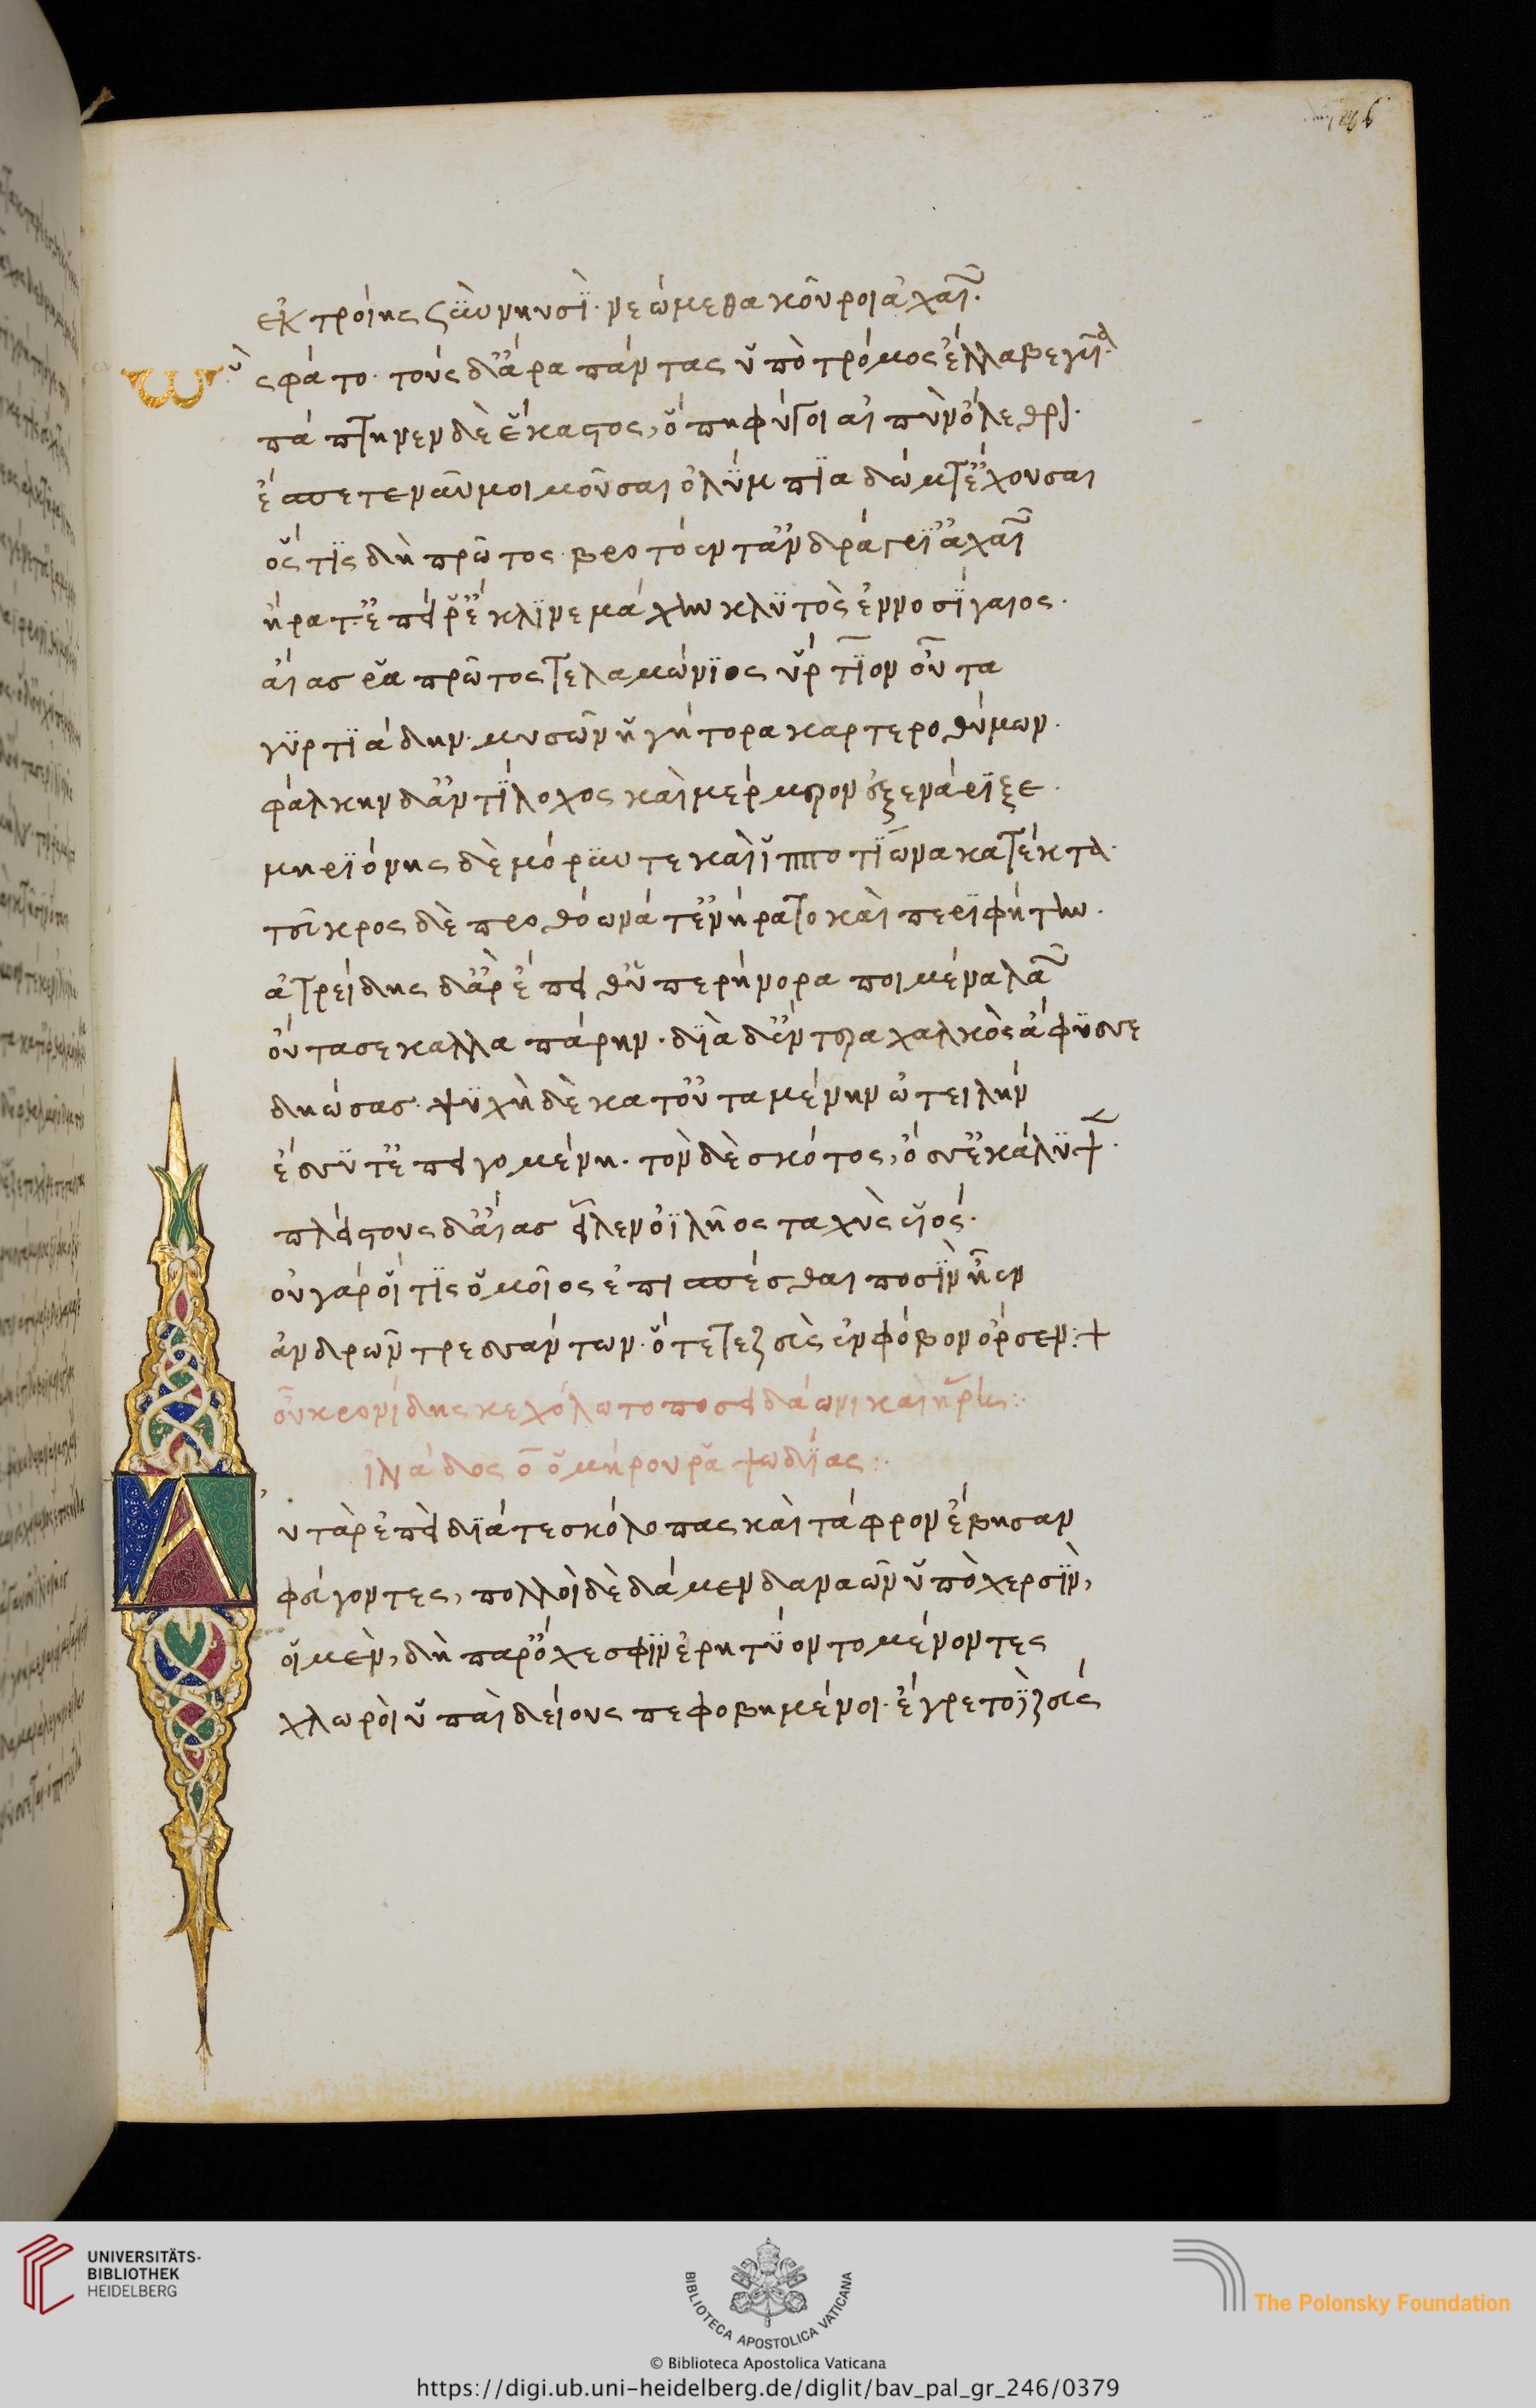 ἐκ τροίης ξὺν νηυσὶ νεώμεθα κοῦροι ἀχαιῶν·
ὣς φάτο· τοὺς δ' ἄρα πάντας ὑπὸ τρόμος ἔλλαβε γυῖα·
πάπτηνεν δὲ ἕκαστος, ὅπη φύγοι αἰπὺν ὄλεθρον·
ἔσπετε νῦν μοι μοῦσαι ὀλύμπια δώματ' ἔχουσαι
ὅς τις δὴ πρῶτος βροτόεντ' ἀνδράγρι' ἀχαιῶν
ἤρατ' ἐπεί ῥ' ἔκλινε μάχην κλυτὸς ἐννοσίγαιος·
αἴας ῥα πρῶτος τελαμώνιος ὕρτιον οὖτα
γυρτιάδην· μυσῶν ἡγήτορα καρτεροθύμων·
φάλκην δ' ἀντίλοχος καὶ μέρμερον ἐξενάριξε·
μηριόνης δὲ μόρυν τε καὶ ἱπποτίωνα κατέκτα·
τεῦκρος δὲ προθόωνά τ' ἐνήρατο καὶ περιφήτην·
ἀτρείδης δ' ἄρ' ἔπειθ' ὑπερήνορα ποιμένα λαῶν
οὔτασε καλλαπάρην· διὰ δ' ἔντερα χαλκὸς ἄφυσσε
δηώσας· ψυχὴ δὲ κατ' οὐταμένην ὠτειλὴν
ἔσσυτ' ἐπειγομένη· τὸν δὲ σκότος, ὄσσ' ἐκάλυψεν·
πλείστους δ' αἴας εἷλεν ὀϊλῆος ταχὺς υἱός·
οὐ γάρ οἵ τις ὁμοῖος ἐπισπέσθαι ποσὶν ἦεν
ἀνδρῶν τρεσσάντων· ὅτε τε ζεὺς ἐν φόβον ὄρσεν:+
οὖ κρονίδης κεχόλωτο ποσειδάωνι καὶ ἥρης:·
ἰλιάδος ο ὁμήρου ῥαψωδίας:·
Αὐτὰρ ἐπεὶ διά τε σκόλοπας καὶ τάφρον ἔβησαν
φεύγοντες, πολλοὶ δὲ δάμεν δαναῶν ὑπὸ χερσὶν,
οἱ μὲν, δὴ παρ' ὄχεσφιν ἐρητύοντο μένοντες
χλωροὶ ὑπαὶ δείους πεφοβημένοι· ἔγρετο ζεύς
UNIVERSITÄTS-
BIBLIOTHEK
HEIDELBERG
BIBLIOTECA APOSTOLICA VATICANA
The Polonsky Foundation
© Biblioteca Apostolica Vaticana
https://digi.ub.uni-heidelberg.de/diglit/bav_pal_gr_246/0379